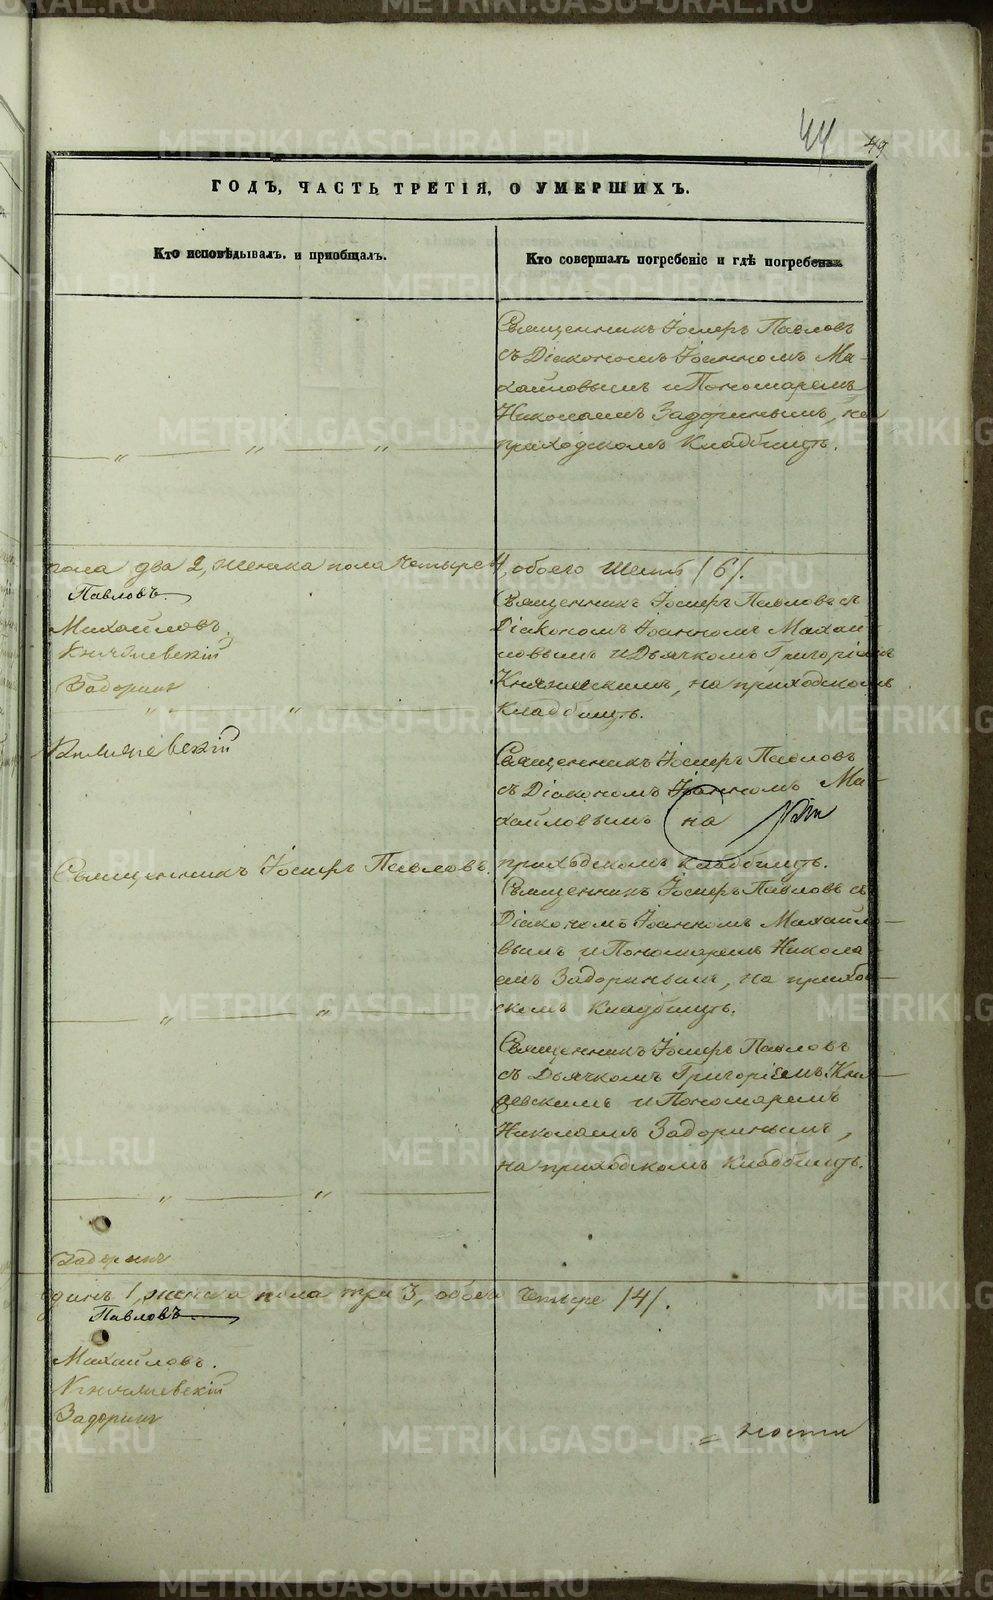 44
49
ГОДЪ, ЧАСТЬ ТРЕТІЯ, О УМЕРШИХЪ.
Кто исповѣдывалъ. и приобщалъ.
Кто совершалъ погребеніе и гдѣ погребены.
Священникъ Іосифъ Павловъ
съ Діакономъ Іоанномъ Ми-
хайловымъ и Пономаремъ
Николаемъ Задоринымъ, на
приходскомъ Кладбищѣ.
пола два 2, женска пола четыре 4, обоего шесть /6/.
Павловъ
Михайловъ.
Задоринъ
Священникъ Іосифъ Павловъ съ
Діакономъ Іоанномъ Михай-
ловымъ и Дьячкомъ Григоріемъ
на приходскомъ
Кладбищѣ.
Священникъ Іосифъ Павловъ
съ Діакономъ Іоанномъ Ми-
хайловымъ на
приходскомъ кладбищѣ.
Священникъ Іосифъ Павловъ.
Священникъ Іосифъ Павловъ съ
Діакономъ Іоанномъ Михайло-
вымъ и Пономаремъ Никола-
емъ Задоринымъ, на приход-
скомъ Кладбищѣ.
Священникъ Іосифъ Павловъ
съ Дьячкомъ Григоріемъ
и Пономаремъ
Николаемъ Задоринымъ,
на приходскомъ кладбищѣ.
Задоринъ
динъ 1, женска пола три 3, обоего четыре /4/.
Павловъ
Михайловъ.
Задоринъ
METRIKI.GASO-URAL.RU